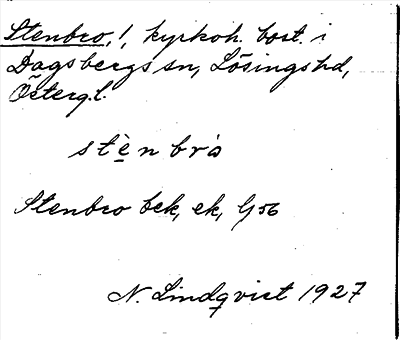 Stenbro, !, kyrkoh. bost. i
Dagsbergs sn, Lösings hd,
Österg.l.
stènbrò
Stenbro bek, ek, Gjo56
N. Lindqvist 1927